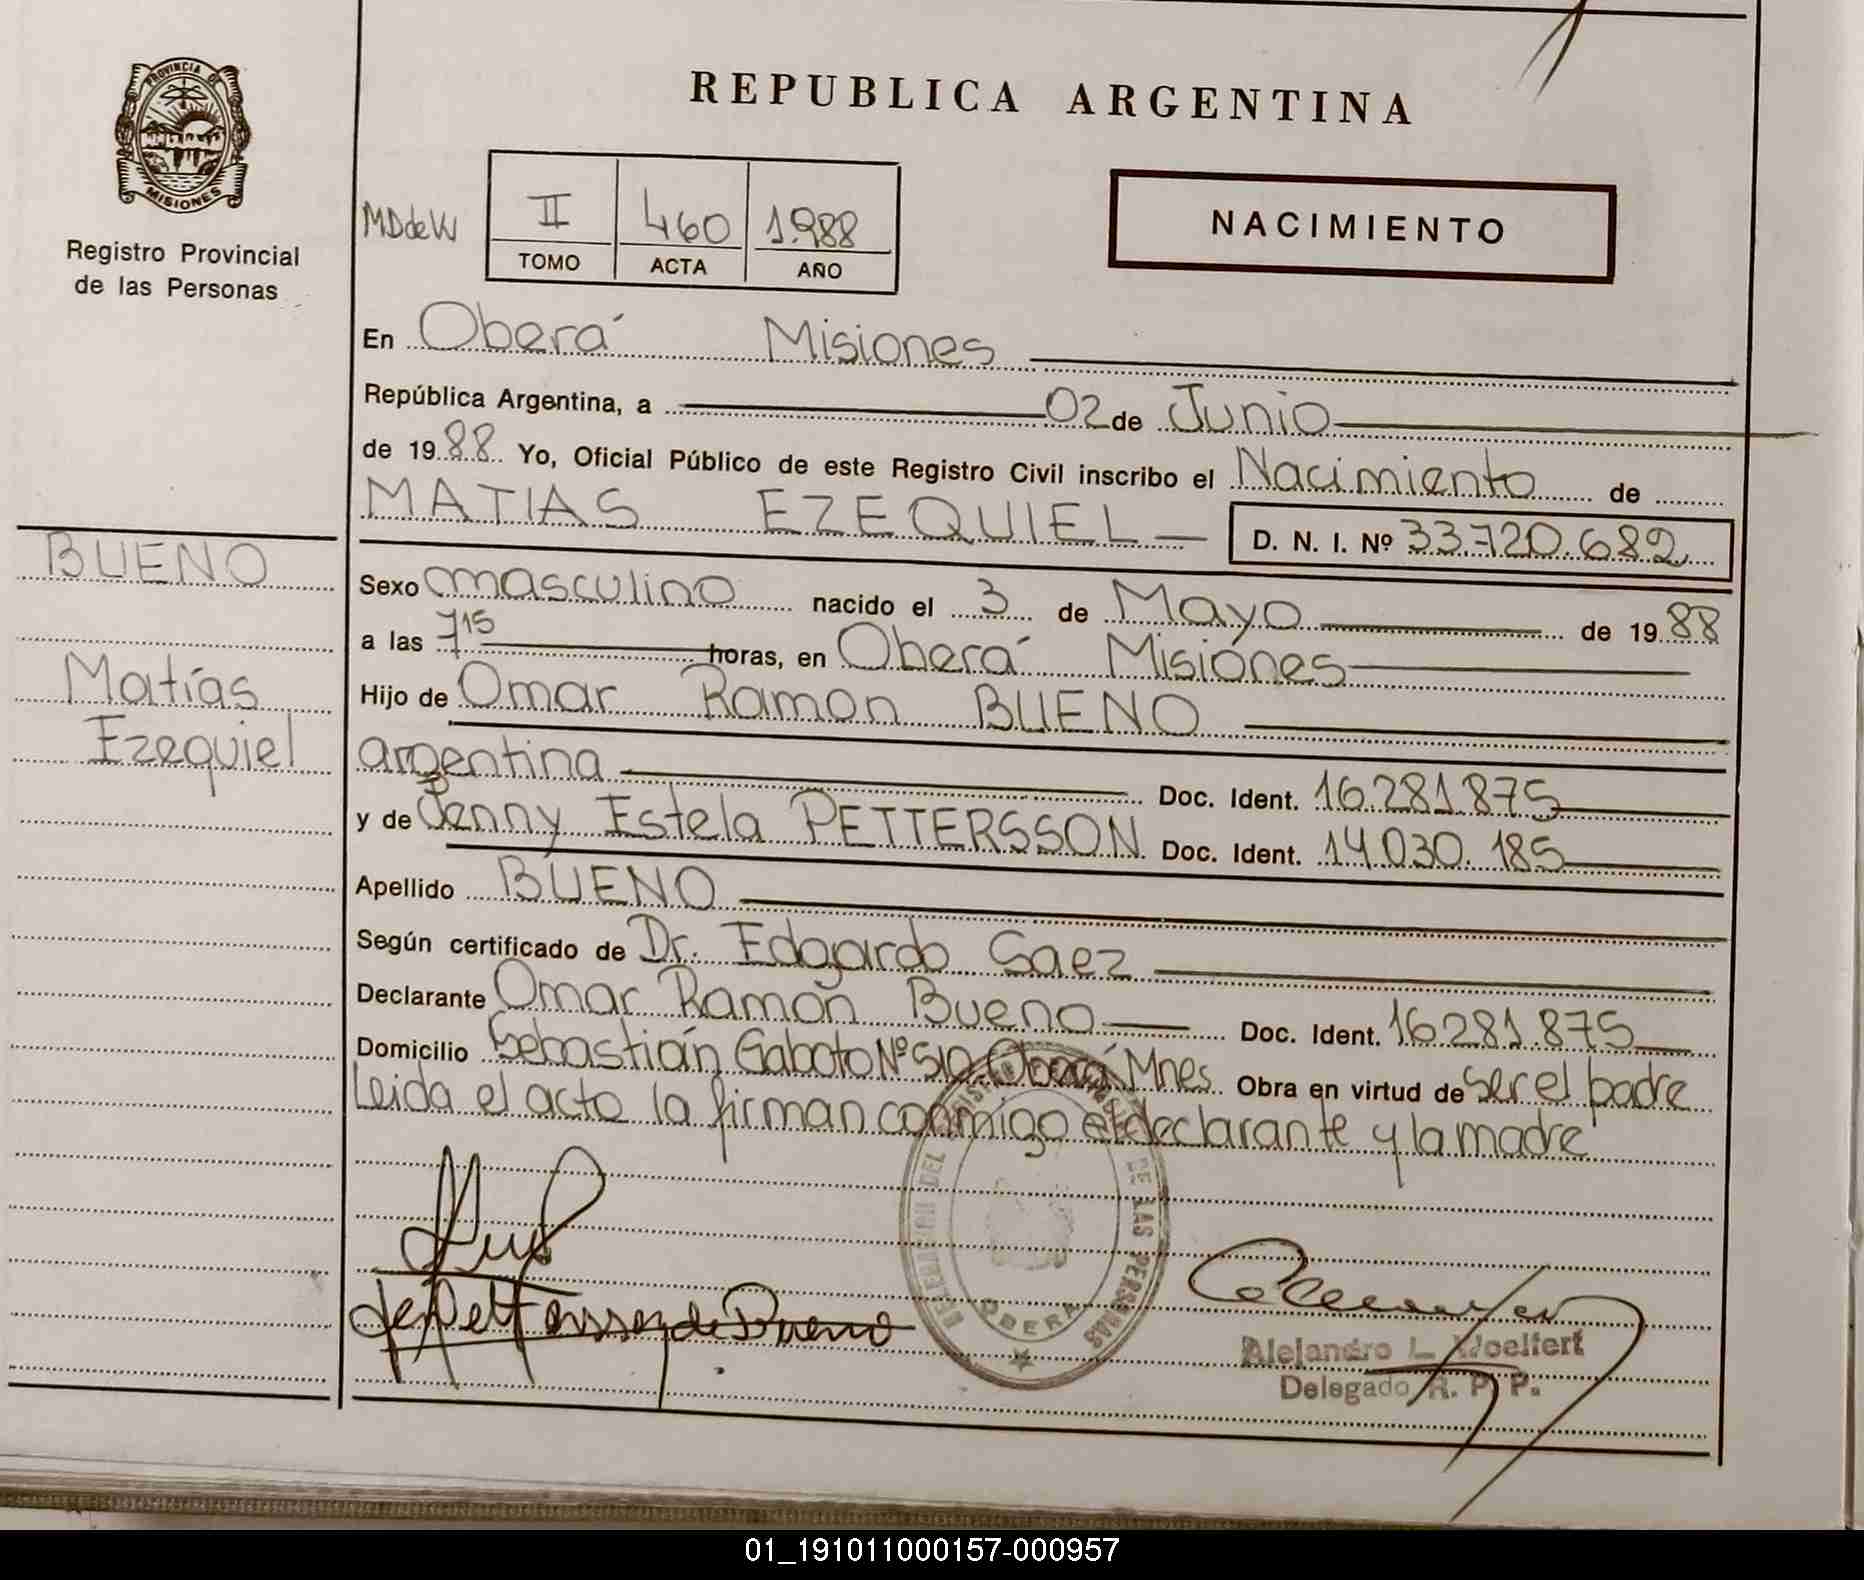 PROVINCIA DE
MISIONES
Registro Provincial
de las Personas
REPUBLICA ARGENTINA
MDdeW
II 460 1.988
TOMO ACTA AÑO
NACIMIENTO
En Oberá Misiones
República Argentina, a 02 de Junio
de 1988 Yo, Oficial Público de este Registro Civil inscribo el Nacimiento de
MATIAS EZEQUIEL D. N. I. Nº 33.720.682
BUENO
Matías
Ezequiel
Sexo masculino nacido el 3 de Mayo de 1988
a las 7 15 horas, en Oberá Misiones
Hijo de Omar Ramon BUENO
argentina Doc. Ident. 16.281.875
y de Jenny Estela PETTERSSON Doc. Ident. 14.030.185
Apellido BUENO
Según certificado de Dr. Edgardo Saez
Declarante Omar Ramón Bueno Doc. Ident. 16.281.875
Domicilio Sebastián Gaboto Nº 510 Oberá Mnes. Obra en virtud de ser el padre
Leida el acto la firman conmigo el declarante y la madre
DE LAS PERSONAS
OBERA
Pettersson de Bueno
Alejandro L. Woelfert
Delegado R. P. P.
01_191011000157-000957